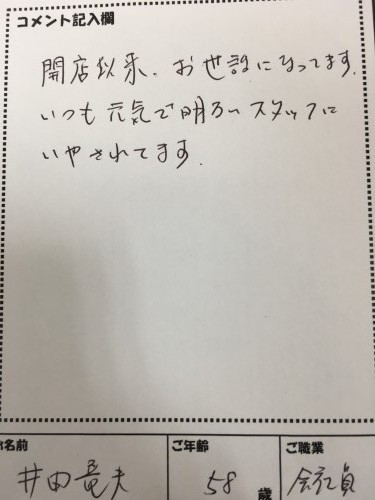 コメント記入欄
開店似来、お世話になってます。
いつも元気で明るいスタッフに
いやされてます。
お名前
ご年齢
ご職業
井田竜夫
58歳
会社員